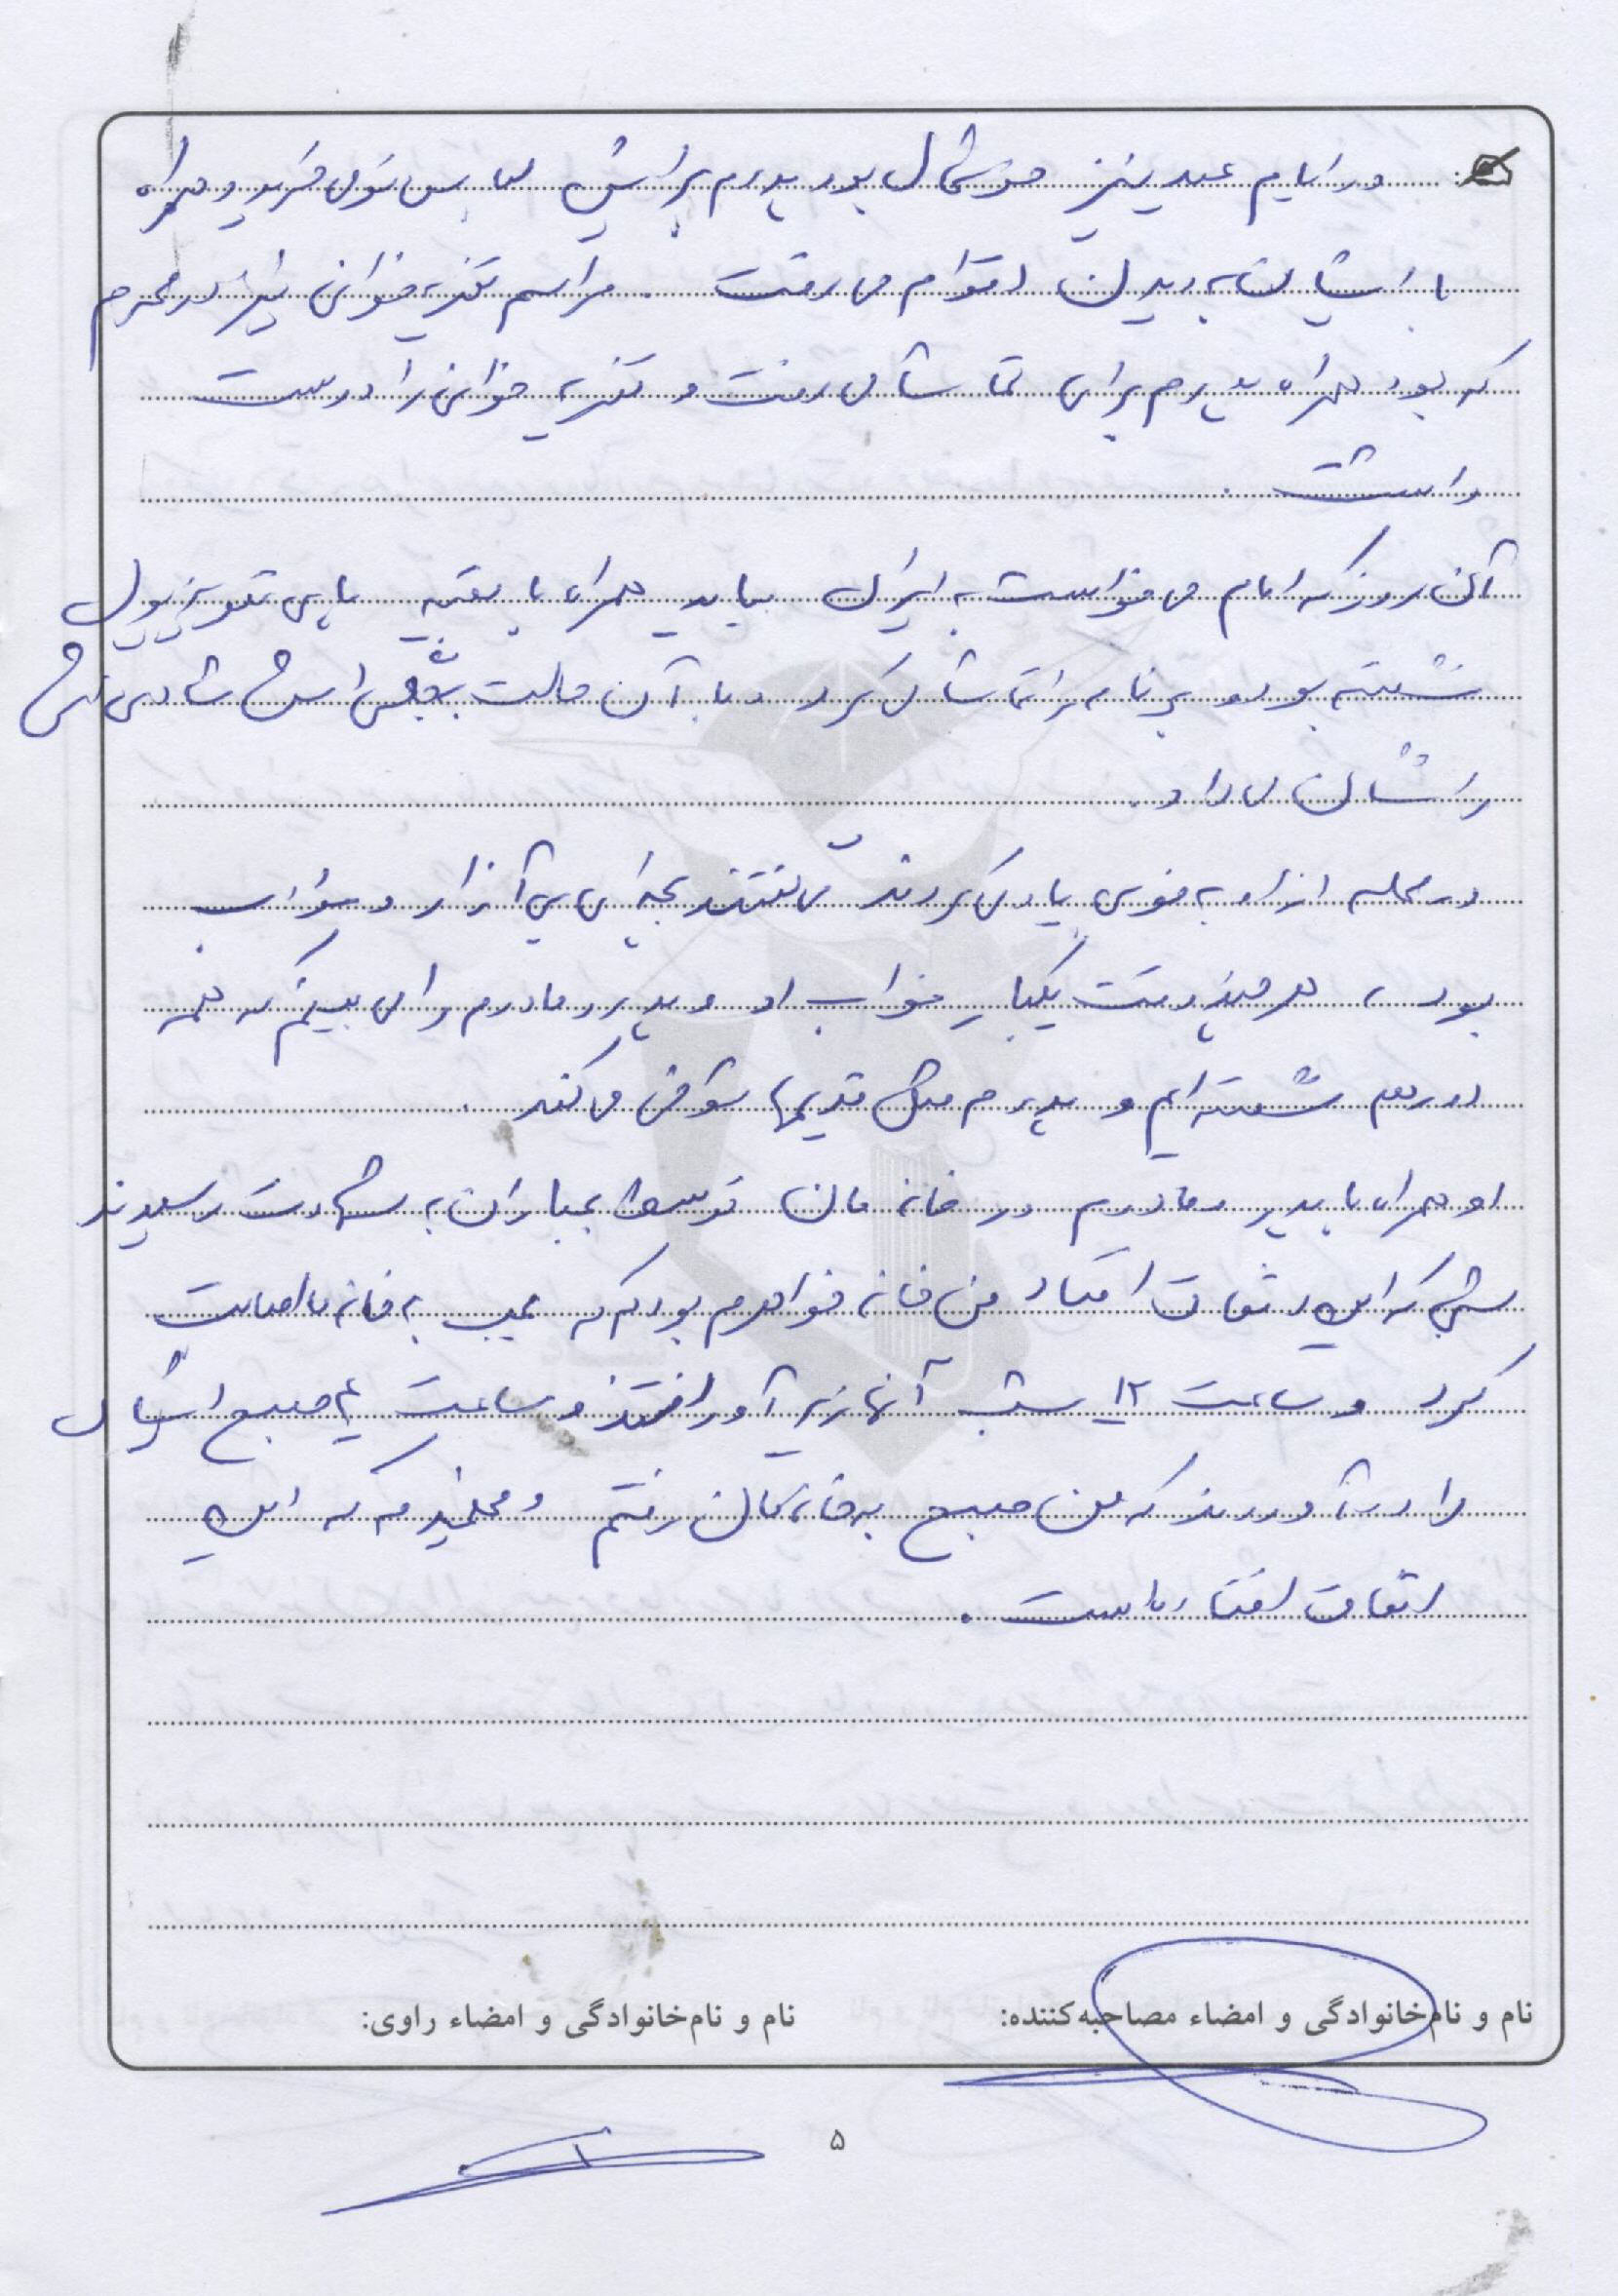 در ایام عید نیز خوشحال بود پدرم برایش لباس نو می خرید و همراه
با ایشان به دیدن اقوام می رفت . مراسم تعزیه خوانی نیز در محرم
که بود همراه پدرم برای تماشا می رفت و تعزیه خوانی را دوست
داشت .
آن روز که امام می خواست به ایران بیاید همراه با بقیه پای تلویزیون
نشسته بود و برنامه را تماشا می کرد و با آن حالت بچگی اش شادی اش
را نشان می داد .
در محله از او به خوبی یاد می کردند می گفتند بچه ای بی آزار و مؤدب
بود ، هر چند وقت یکبار خواب او و پدر و مادرم را می بینم که همه
دور هم نشسته ایم و پدرم مثل قدیمها شوخی می کند .
او همراه با پدر و مادرم در خانه مان توسط بمباران به شهادت رسیدند
شبی که این اتفاق افتاد من خانه خواهرم بودم که بمب به خانه ما اصابت
کرد و ساعت ۱۲ شب آنها زیر آوار افتند و ساعت ۴ صبح ایشان
را در آوردند که من صبح به خانه مان رفتم و فهمیدم که این
اتفاق افتاده است .
نام و نام‌خانوادگی و امضاء مصاحبه‌کننده:
نام و نام‌خانوادگی و امضاء راوی:
۵